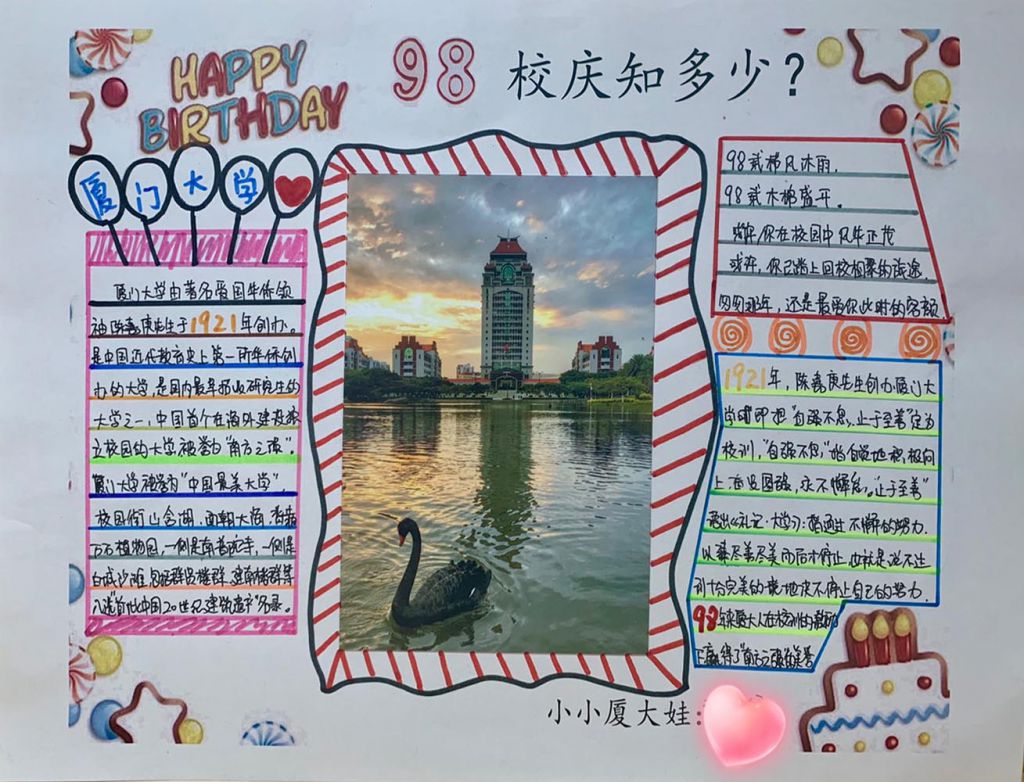 HAPPY
BIRTHDAY
98 校庆知多少？
厦门大学
厦门大学由著名爱国华侨领
袖陈嘉庚先生于1921年创办。
是中国近代教育史上第一所华侨创
办的大学，是国内最早招收研究生的
大学之一，中国首个在海外建设独
立校园的大学，被誉为"南方之强"。
厦门大学被誉为"中国最美大学"，
校园依山含湖，面朝大海，背靠
万石植物园，一侧是南普陀寺，一侧是
白城沙滩，群贤楼群、建南楼群等
入选"首批中国20世纪建筑遗产"名录。
98载栉风沐雨，
98载木棉盛开。
或许，你在校园中风华正茂
或许，你已踏上回校相聚的旅途，
匆匆那年，还是最爱你此时的容颜
1921年，陈嘉庚先生创办厦门大
学时即把"自强不息，止于至善"定为
校训，"自强不息"指自觉地积极向
上、奋发图强、永不懈怠。"止于至善"
语出《礼记·大学》：指通过不懈的努力，
以臻尽善尽美而后才停止，也就是说不达
到十分完美的境地决不停止自己的努力。
98年来厦大人在校训的激励
下赢得了"南方之强"的美誉
小小厦大娃：